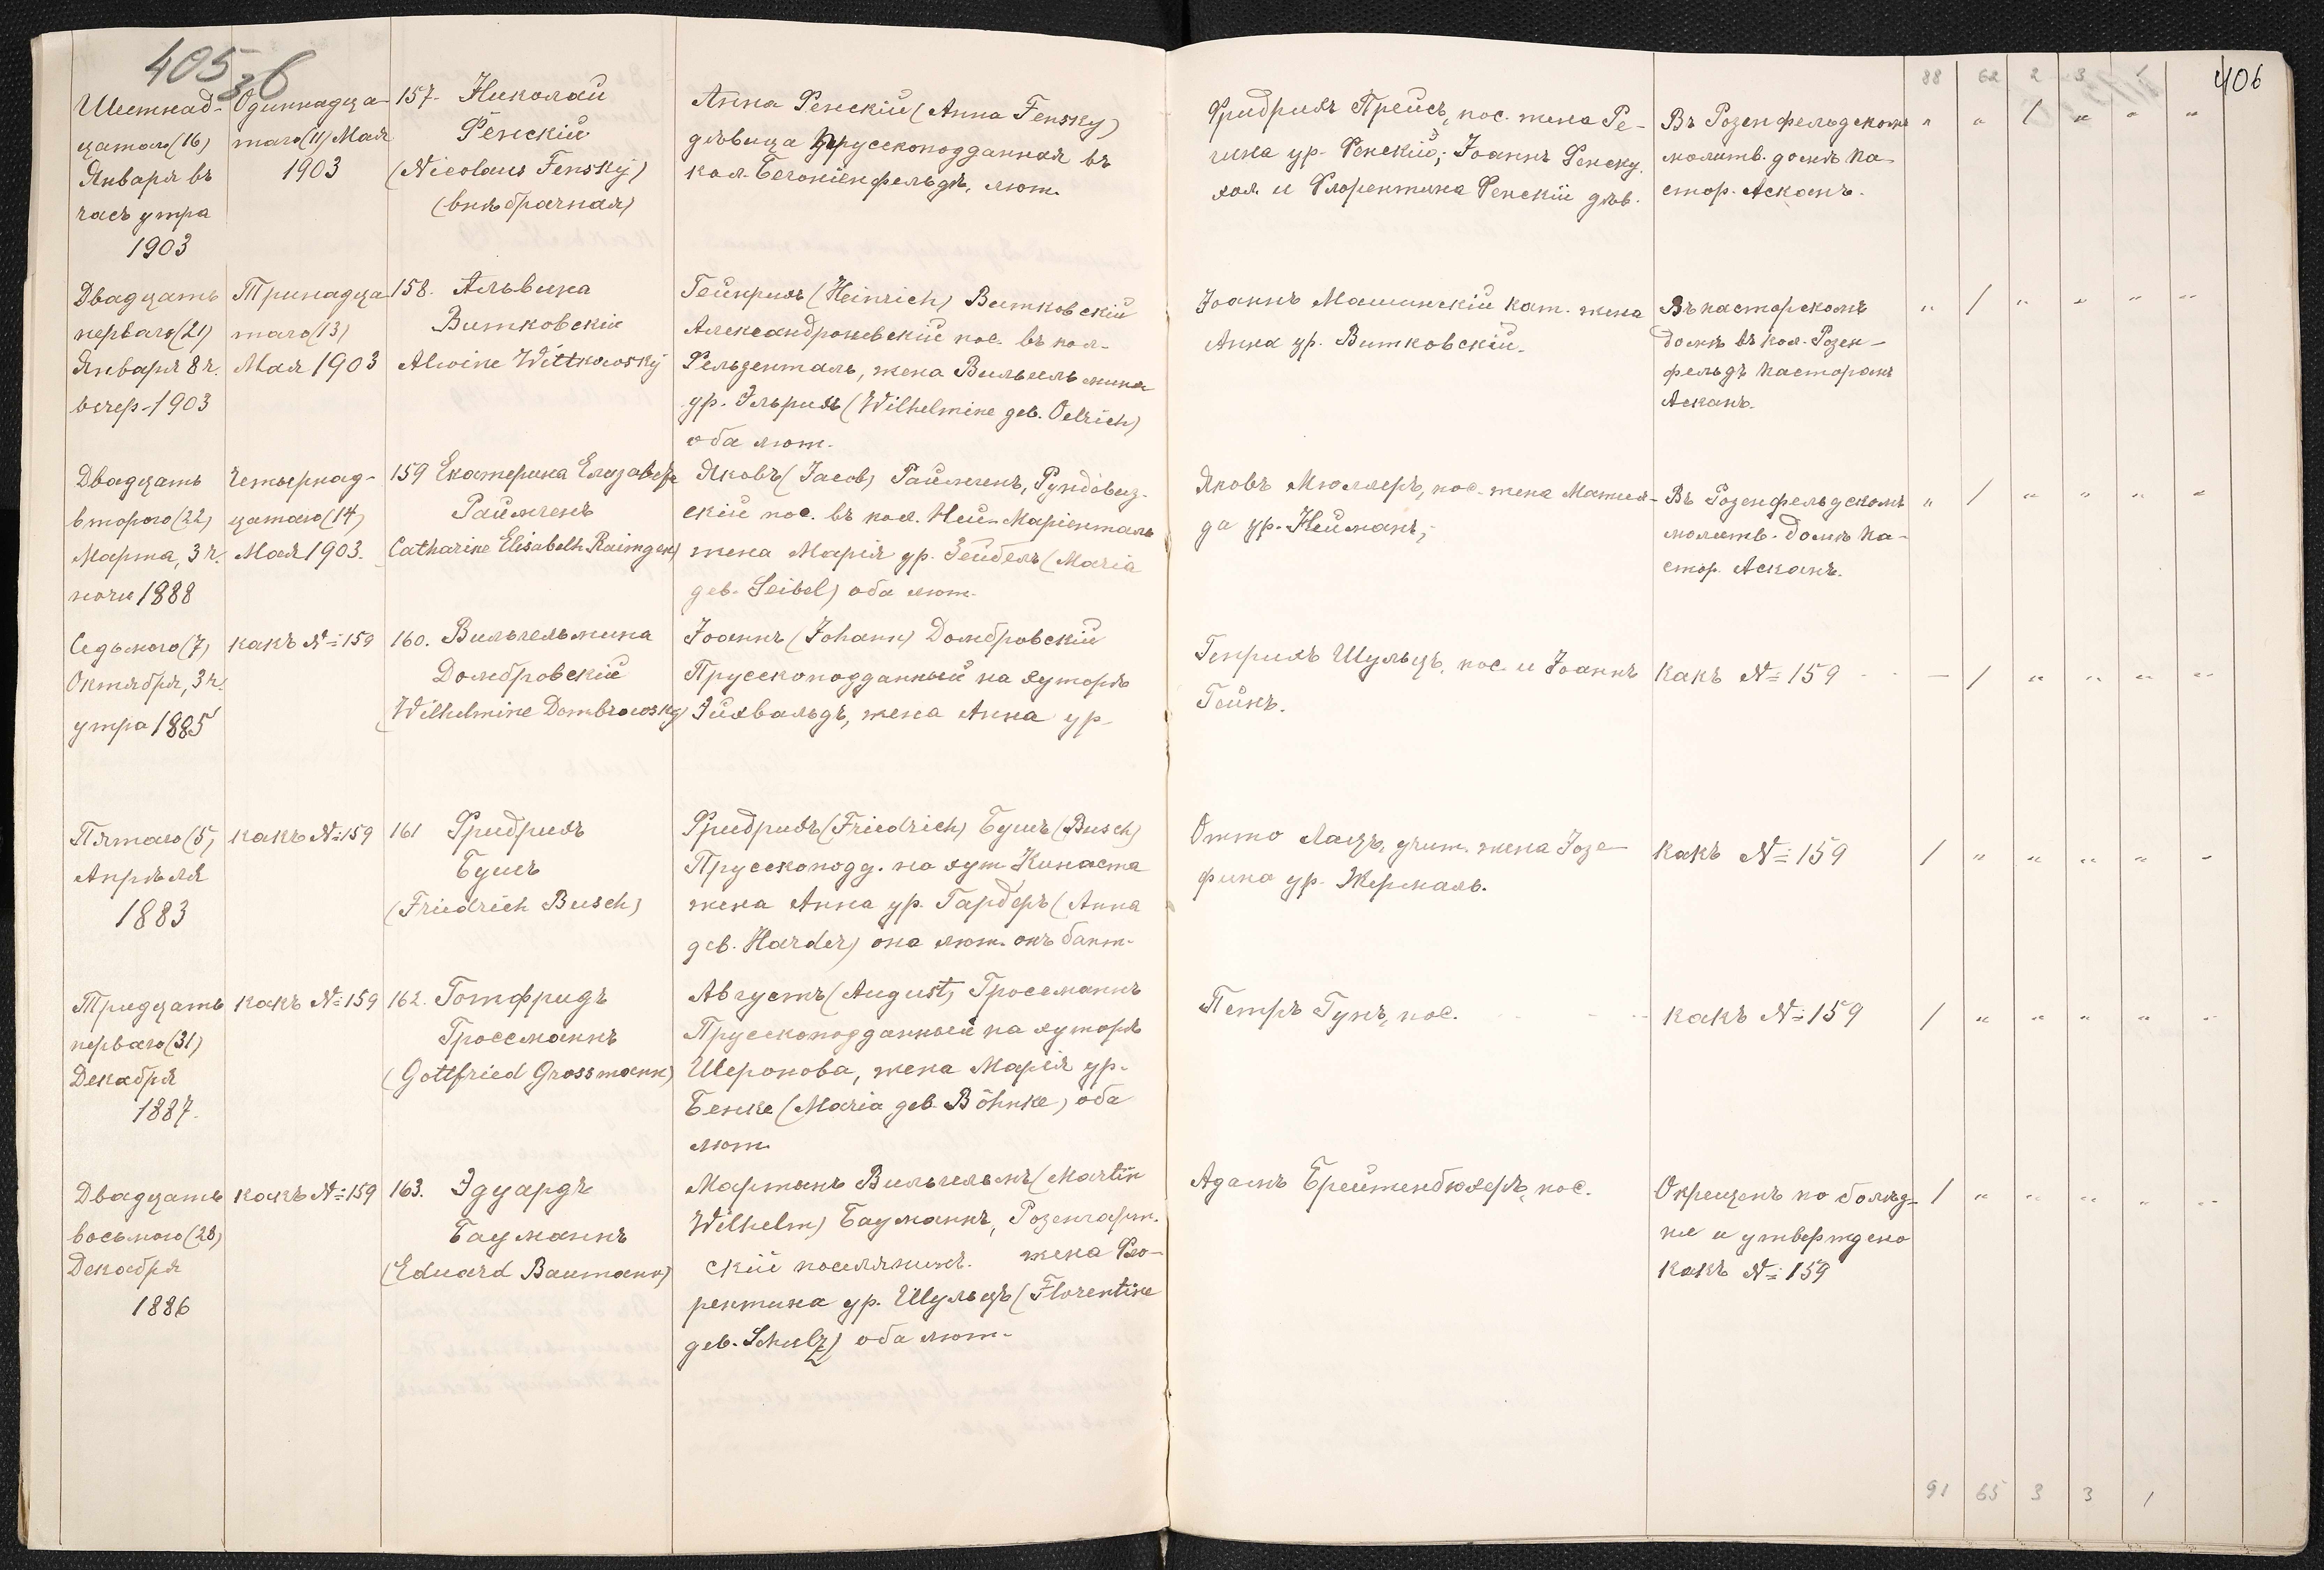 405
36
88 62 2 3 1
406
Шестнад-
цатаго (16)
Января въ
часъ утра
1903
Одиннадца-
таго (11) Мая
1903
157. Николай
Фенскій
(Nicolaus Fensky)
(внѣбрачная)
Анна Фенскій (Anna Fensky)
дѣвица Прусскоподданная въ
кол. лют.
Фридрихъ Прейсъ, пос. жена Ре-
гина ур. Фенскій; Іоаннъ Фенску.
хол. и Флорентина Фенскій дѣв.
Въ Розенфельдскомъ
молитв. домѣ па-
стор. Асканъ.
" " / " " "
Двадцать
перваго (21)
Января 8 ч.
вечер. 1903
Тринадца-
таго (13)
Мая 1903
158. Альвина
Витковскій
Alwine Wittkowsky
Гейнрихъ (Heinrich) Витковскій
Александроневскій пос. въ кол.
Фельзенталь, жена Вильгельмина
ур. Эльрихъ (Wilhelmine geb. Oelrich)
оба лют.
Іоаннъ Машинскій кат. жена
Анна ур. Витковскій.
Въ пасторскомъ
домѣ въ кол. Розен-
фельдъ пасторомъ
Асканъ.
" / " " " "
Двадцать
второго (22)
Марта, 3 ч.
ночи 1888
Четырнад-
цатаго (14)
Мая 1903.
159 Екатерина Елизавета
Раймгенъ
Catharine Elisabeth Raimgen)
Яковъ (Jacob) Раймгенъ, Рундовиз-
скій пос. въ кол. Ней-Маріенталь
жена Марія ур. Зейбель (Maria
geb. Seibel) оба лют.
Яковъ Мюллеръ, пос. жена Матиль-
да ур. Нейманъ;
Въ Розенфельдскомъ
молитв. домѣ па-
стор. Асканъ.
" / " " " "
Седьмого (7)
Октября, 3 ч.
утра 1885
какъ № 159
160. Вильгельмина
Домбровскій
(Wilhelmine Dombrowsky)
Іоаннъ (Johann) Домбровскій
Прусскоподданный на хуторѣ
Эйхвальдъ, жена Анна ур.
Генрихъ Шульцъ, пос. и Іоаннъ
Гейнъ.
какъ № 159
— / " " " "
Пятаго (5)
Апрѣля
1883
какъ № 159
161 Фридрихъ
Бушъ
(Friedrich Busch)
Фридрихъ (Friedrich) Бушъ (Busch)
Прусскоподд. на хут Кинаста
жена Анна ур. Гардеръ (Anna
geb. Harder) она лют. онъ бапт.
Отто Лацъ, учит. жена Іозе-
фина ур. Жермаль.
какъ № 159
/ " " " " "
Тридцать
перваго (31)
Декабря
1887.
какъ № 159
162. Готфридъ
Гроссманнъ
(Gottfried Grossmann)
Августъ (August) Гроссманнъ
Прусскоподданный на хуторѣ
Шеронова, жена Марія ур.
Бенке (Maria geb. Böhnke) оба
лют.
Петръ Гунъ, пос.
какъ № 159
/ " " " " "
Двадцать
восьмого (28)
Декабря
1886
какъ № 159
163. Эдуардъ
Бауманнъ
(Eduard Baumann)
Мартинъ Вильгельмъ (Martin
Wilhelm) Бауманнъ, Розенгарт-
скій поселянинъ. жена Фло-
рентина ур. Шульцъ (Florentine
geb. Schulz) оба лют.
Адамъ Брейтенбюхеръ, пос.
Окрещенъ по болѣз-
ни и утверждено
какъ № 159
/ " " " " "
91 65 3 3 1